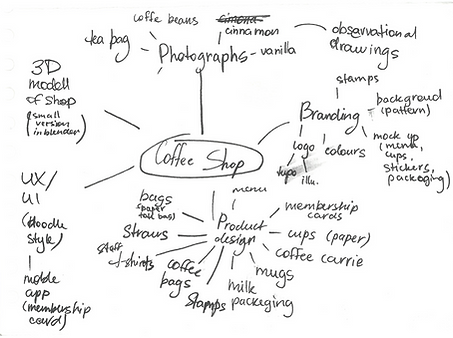 coffe beans
cinnamon
tea bag
Photographs
vanilla
observational
drawings
3D
modell
of shop
(small
version
in blender)
stamps
Branding
background
(pattern)
mock up
(menu,
cups,
stickers,
packaging)
logo
colours
typo
illu.
Coffee Shop
UX/
UI
(doodle
style)
mobile
app
(membership
card)
menu
Product
design
bags
(paper
tote bag)
Straws
staff
t-shirts
coffee
bags
Stamps
milk
packaging
mugs
coffee carrie
cups (paper)
membership
cards